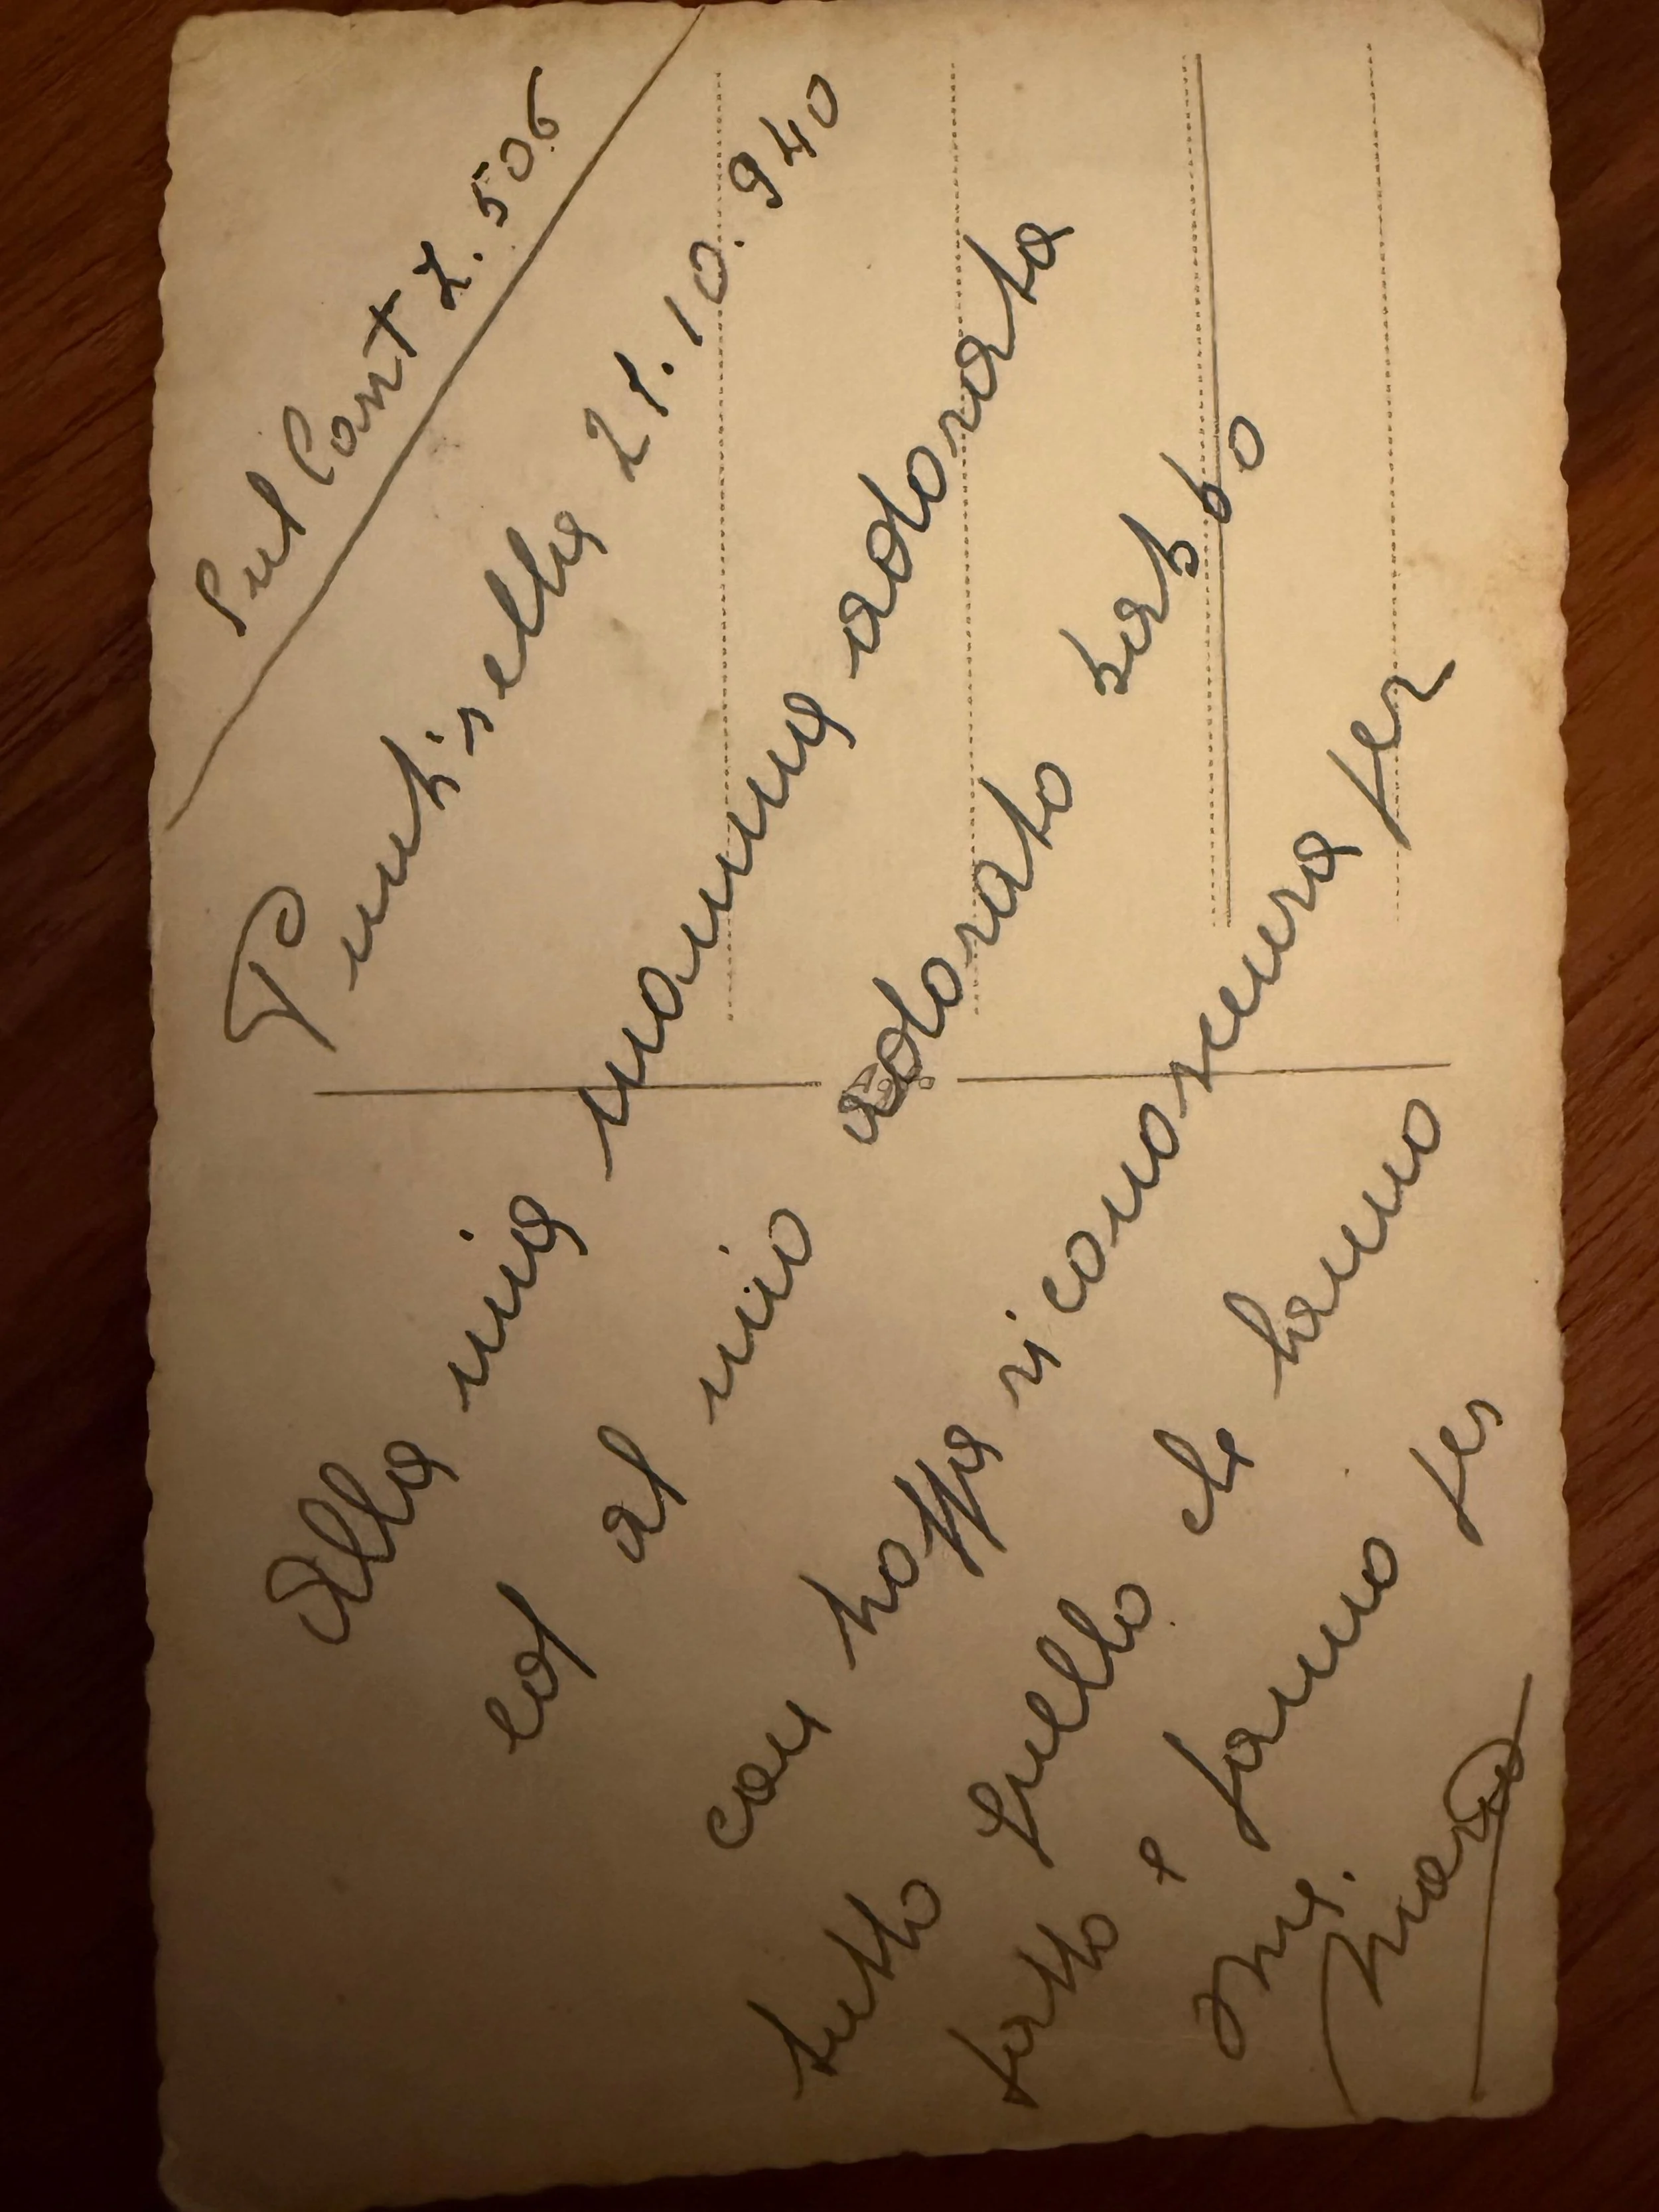 Pantisella 21.10.940
Alla mia mamma adorata
ed al mio adorato babbo
con troppa riconoscenza per
tutto quello che hanno
fatto e fanno per
me.